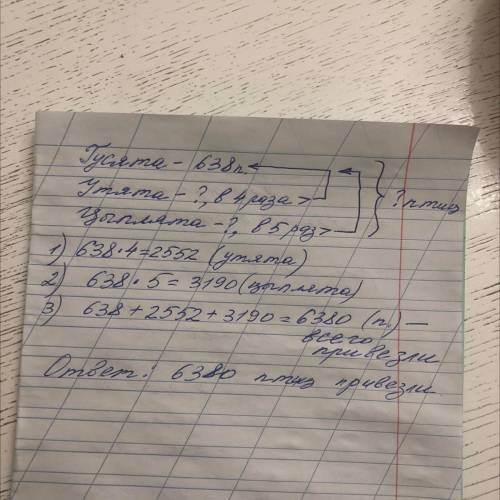 Гусята - 638п.
Утята - ?, в 4 раза > ? птиц
Цыплата - ?, в 5 раз >
1) 638·4=2552 (утята)
2) 638·5=3190 (цыплята)
3) 638+2552+3190=6380 (п.) —
всего
привезли
Ответ: 6380 птиц привезли